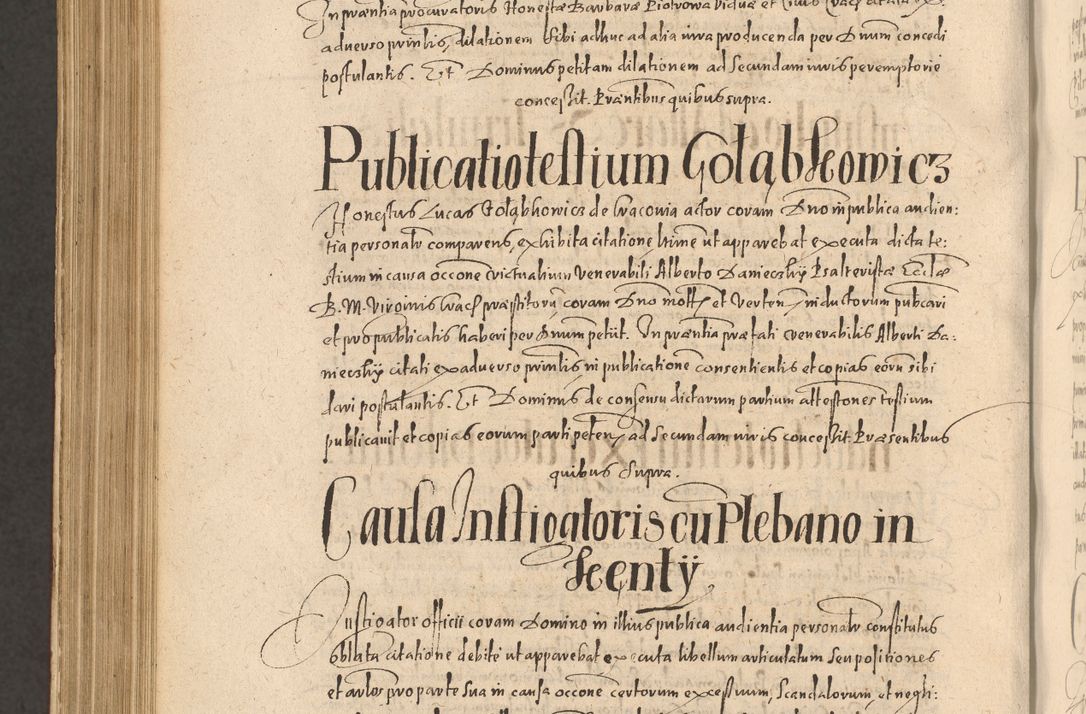 In præntia procuratoris Honestæ Barbaræ Piotrowa viduæ et
adverso prinlis, dilationem sibi adhuc ad alia iura producenda per Dnum concedi
postulantis. Et Dominus petitam dilationem ad secundam iuris peremptorie
concessit. Præntibus quibus supra.
Publicatio testium Gołąbkowicz
Honestus Lucas Gołąbkowicz de Cracovia actor coram Dno in publica audien:
tia personalr comparens, exhibita citatione hinc ut apparebat executa dicta te:
stium in causa occone victualium venerabili Alberto Danieczky Psalteristæ Ecclæ
B. M. Virginis Crac præstitorum coram Dno et verten inductorum publicari
et pro publicatis haberi per Dnum petiit. In præntia præfati venerabilis Alberti Da:
nieczky citati ex adverso prinlis in publicatione consentientis et copias eorum sibi
dari postulantis. Et Dominus de consensu dictarum partium attestones testium
publicavit et copias eorum parti peten ad secundam iuris concessit. Præsentibus
quibus supra.
Causa Instigatoris cum Plebano in
Kenty
Instigator officii coram Domino in illius publica audientia personalr constitutus
oblata citatione debite ut apparebat executa libellum articulatum seu positiones
et artlos pro parte sua in causa occone certorum excessuum, scandalorum, et negli: